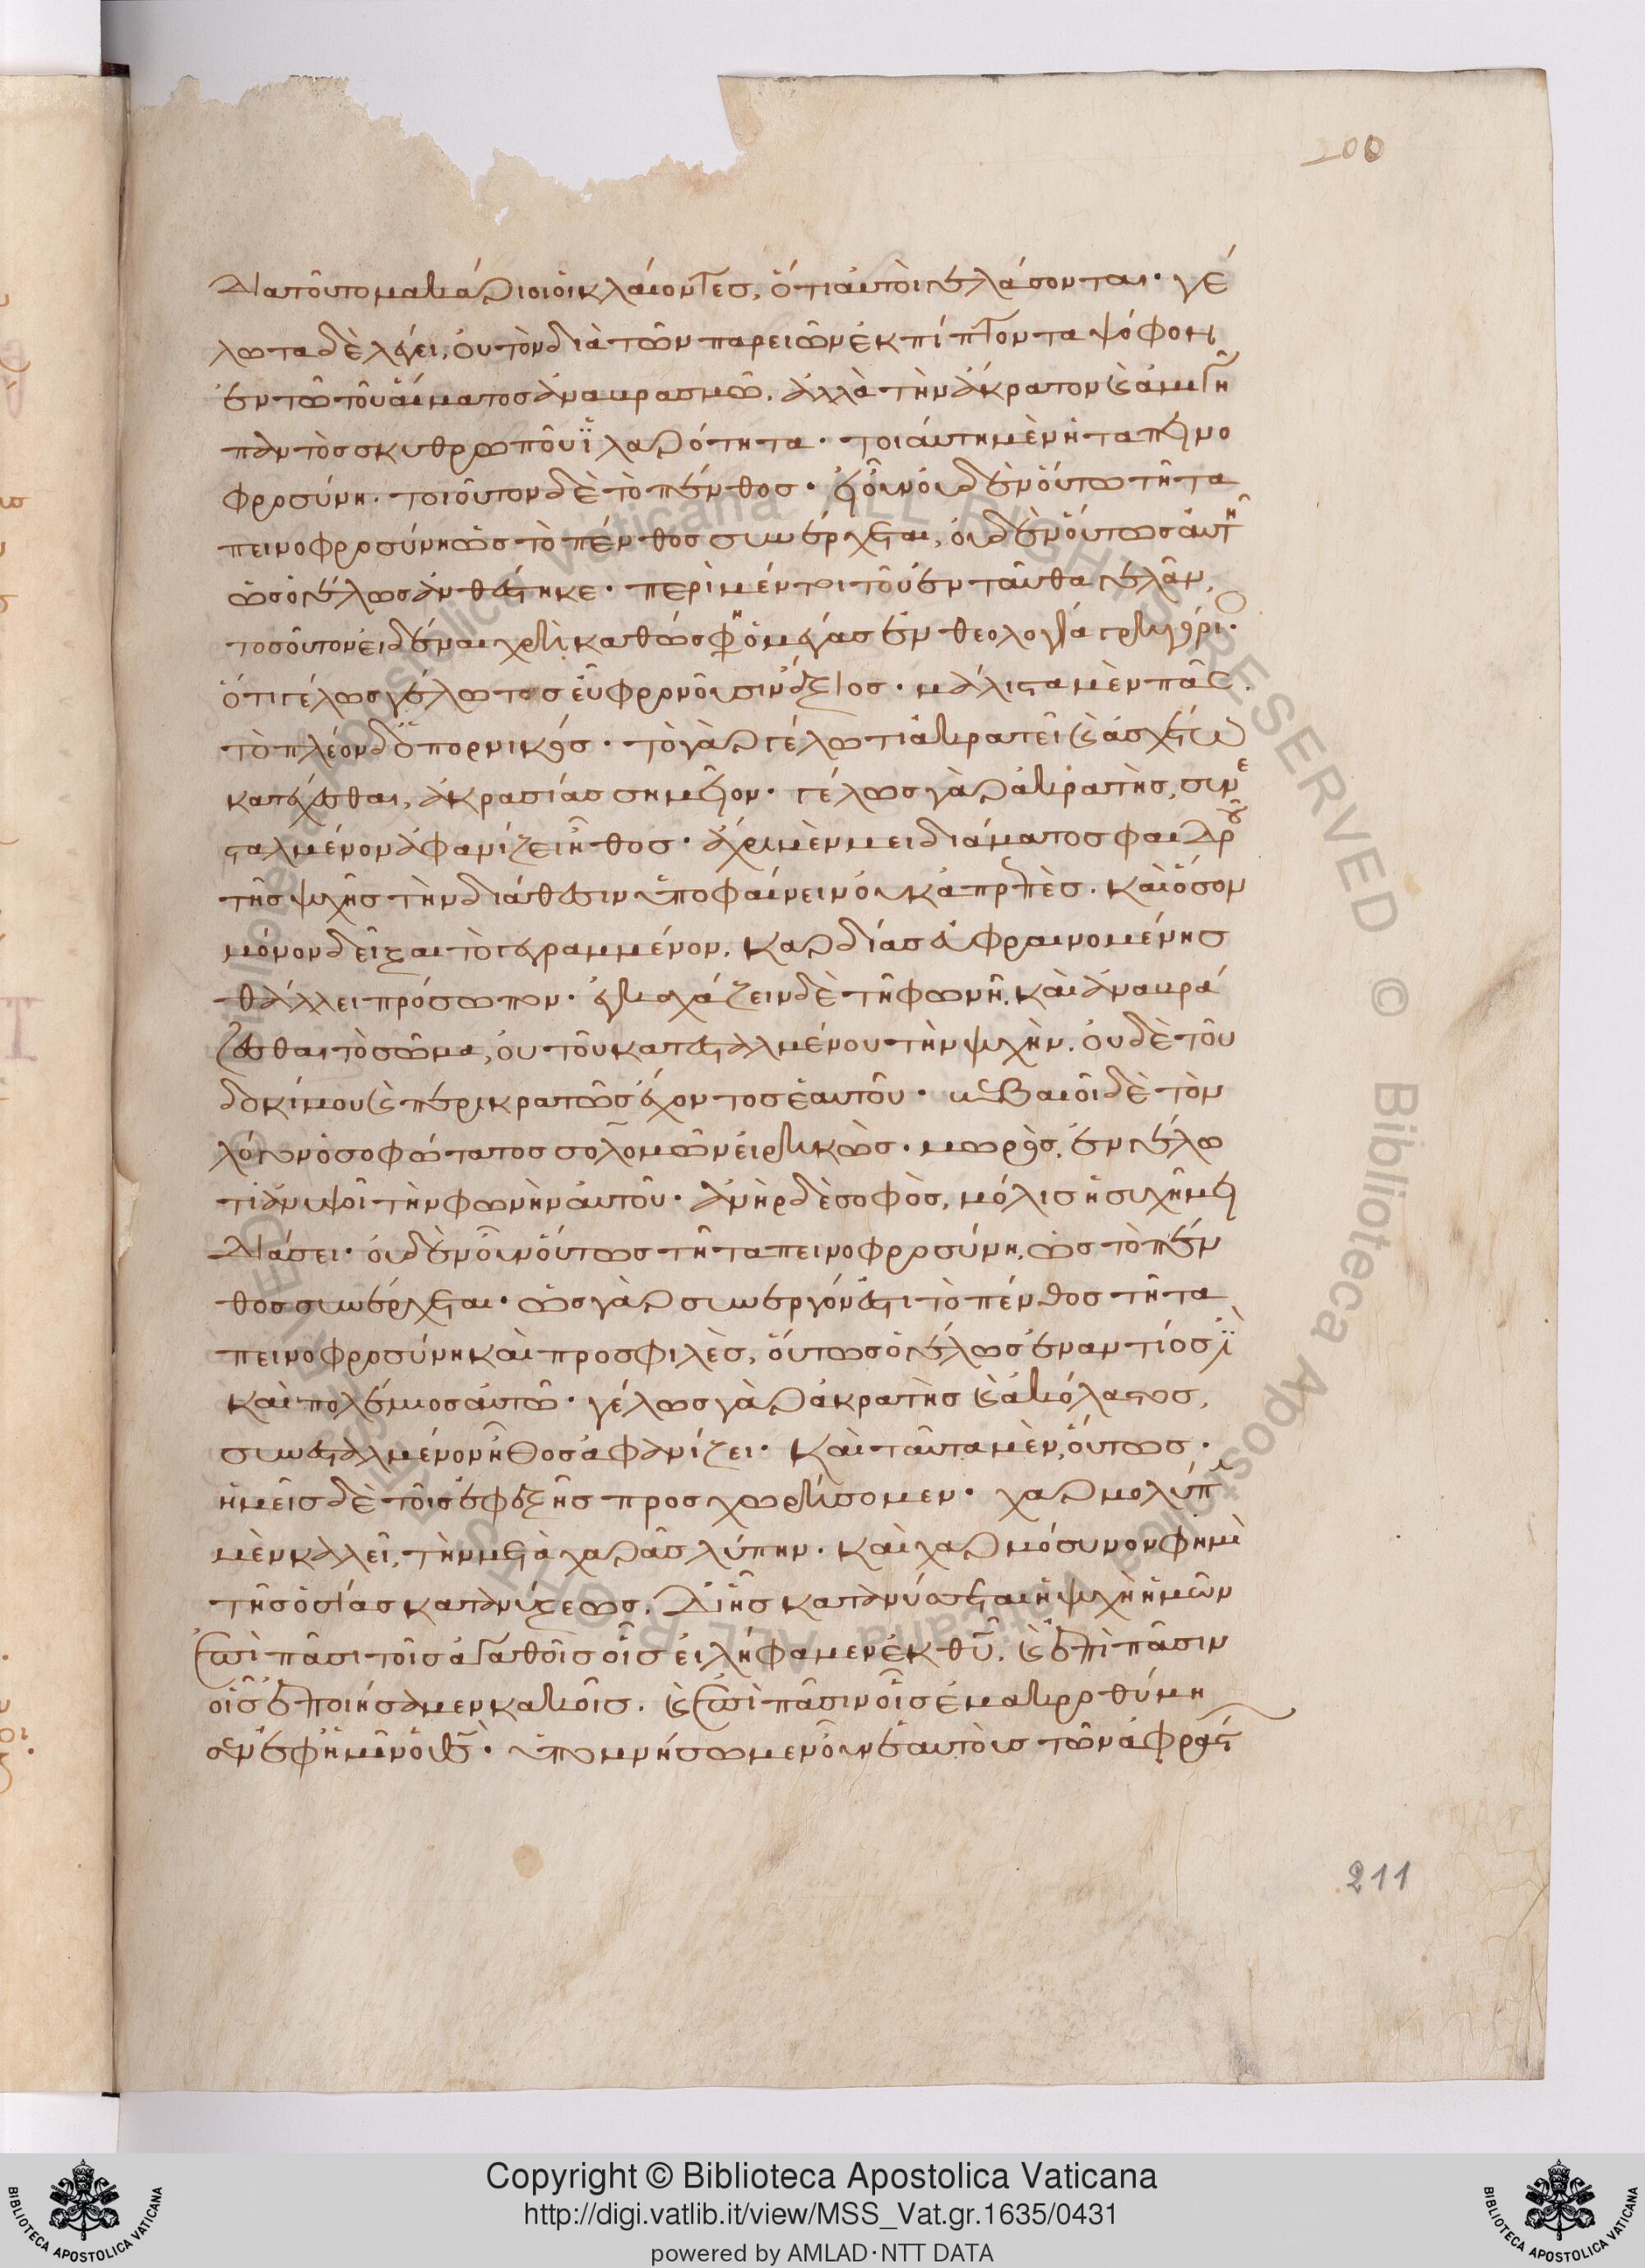 200
διατοῦτο μακάριοι οἱ κλαίοντες, ὅτι αὐτοὶ γελάσονται· γέ
λωτα δὲ λέγει, οὐ τὸν διὰ τῶν παρειῶν ἐκπίπτοντα ψόφον
ἐν τῶ τοῦ αἵματος ἀνακρασμῶ. ἀλλὰ τὴν ἄκρατον καὶ ἀμιγῆ
παντὸς σκυθρωποῦ ἱλαρότητα· τοιαύτη μὲν ἡ ταπεινο
φροσύνη. τοιοῦτον δὲ τὸ πένθος· οὖν οὐδὲν οὕτω τῆ τα
πεινοφροσύνη ὡς τὸ πένθος συνέρχεται, οὐδὲν οὕτως αὐτῆ
ὡς ὁ γέλως ἀνθέστηκε· περὶ μέντοι τοῦ ἐνταῦθα γελᾶν,
τοσοῦτον εἰδέναι χρὴ καθώς φη ὁ μέγας ἐν θεολογία γρηγόρι·
ὅτι γέλως γέλωτος εὖ φρονοῦσιν ἄξιος· μάλιστα μὲν πᾶς.
τὸ πλέον δὲ ὁ πορνικός· τὸ γὰρ γέλωτι ἀκρατεῖ καὶ ἀσχέτω
κατέχεσθαι, ἀκρασίας σημεῖον· γέλως γὰρ ἀκρατὴς, συνε
σταλμένον ἀφανίζει ἦθος· ἄχρι μὲν μειδιάματος φαιδροῦ
τῆς ψυχῆς τὴν διάθεσιν ὑποφαίνειν οὐκ ἀπρεπὲς. καὶ ὅσον
μόνον δεῖξαι τὸ γεγραμμένον, καρδίας εὐφραινομένης
θάλλει πρόσωπον· ἐγκαχάζειν δὲ τῆ φωνῆ, καὶ ἀνακρά
ζεσθαι τὸ σῶμα, οὐ τοῦ κατεσταλμένου τὴν ψυχὴν, οὐδὲ τοῦ
δοκίμου καὶ περικρατῶς ἔχοντος ἑαυτοῦ· βεβαιοῖ δὲ τὸν
λόγον ὁ σοφώτατος σολομῶν εἰρηκὼς· μωρὸς, ἐν γέλω
τι ἀνυψοῖ τὴν φωνὴν αὐτοῦ· ἀνὴρ δὲ σοφὸς, μόλις ἡσυχῆ μει
διάσει· οὐδὲν οὖν οὕτως τῆ ταπεινοφροσύνη, ὡς τὸ πέν
θος συνέρχεται· ὡς γὰρ συνεργόν ἐστι τὸ πένθος τῆ τα
πεινοφροσύνη καὶ προσφιλὲς, οὕτως ὁ γέλως ἐναντίος
καὶ πολέμιος αὐτῶ· γέλως γὰρ ἀκρατὴς καὶ ἀκόλαστος,
συνεσταλμένον ἦθος ἀφανίζει· καὶ ταῦτα μὲν, οὕτως·
ἡμεῖς δὲ τοῖς ἐφεξῆς προσχωρήσομεν· χαρμολύπ
μὲν καλεῖ, τὴν μετὰ χαρᾶς λύπην· καὶ χαρμόσυνον φημὶ
τῆς ὁσίας κατανύξεως, δι' ἧς κατανύσσεται ἡ ψυχὴ ἡμῶν
ἐπὶ πᾶσι τοῖς ἀγαθοῖς οἷς εἰλήφαμεν ἐκ θυ, καὶ ἐπὶ πᾶσιν
οἷς ἐποιήσαμεν κακοῖς. καὶ ἐπὶ πᾶσιν οἷς ἐμακροθύμη
σεν ἐφ' ἡμῖν ὁ θς· ὑπομνήσωμεν οὖν ἑαυτοὺς τῶν ἀφορήτ
211
Copyright © Biblioteca Apostolica Vaticana
http://digi.vatlib.it/view/MSS_Vat.gr.1635/0431
powered by AMLAD·NTT DATA
BIBLIOTECA APOSTOLICA VATICANA
BIBLIOTECA APOSTOLICA VATICANA